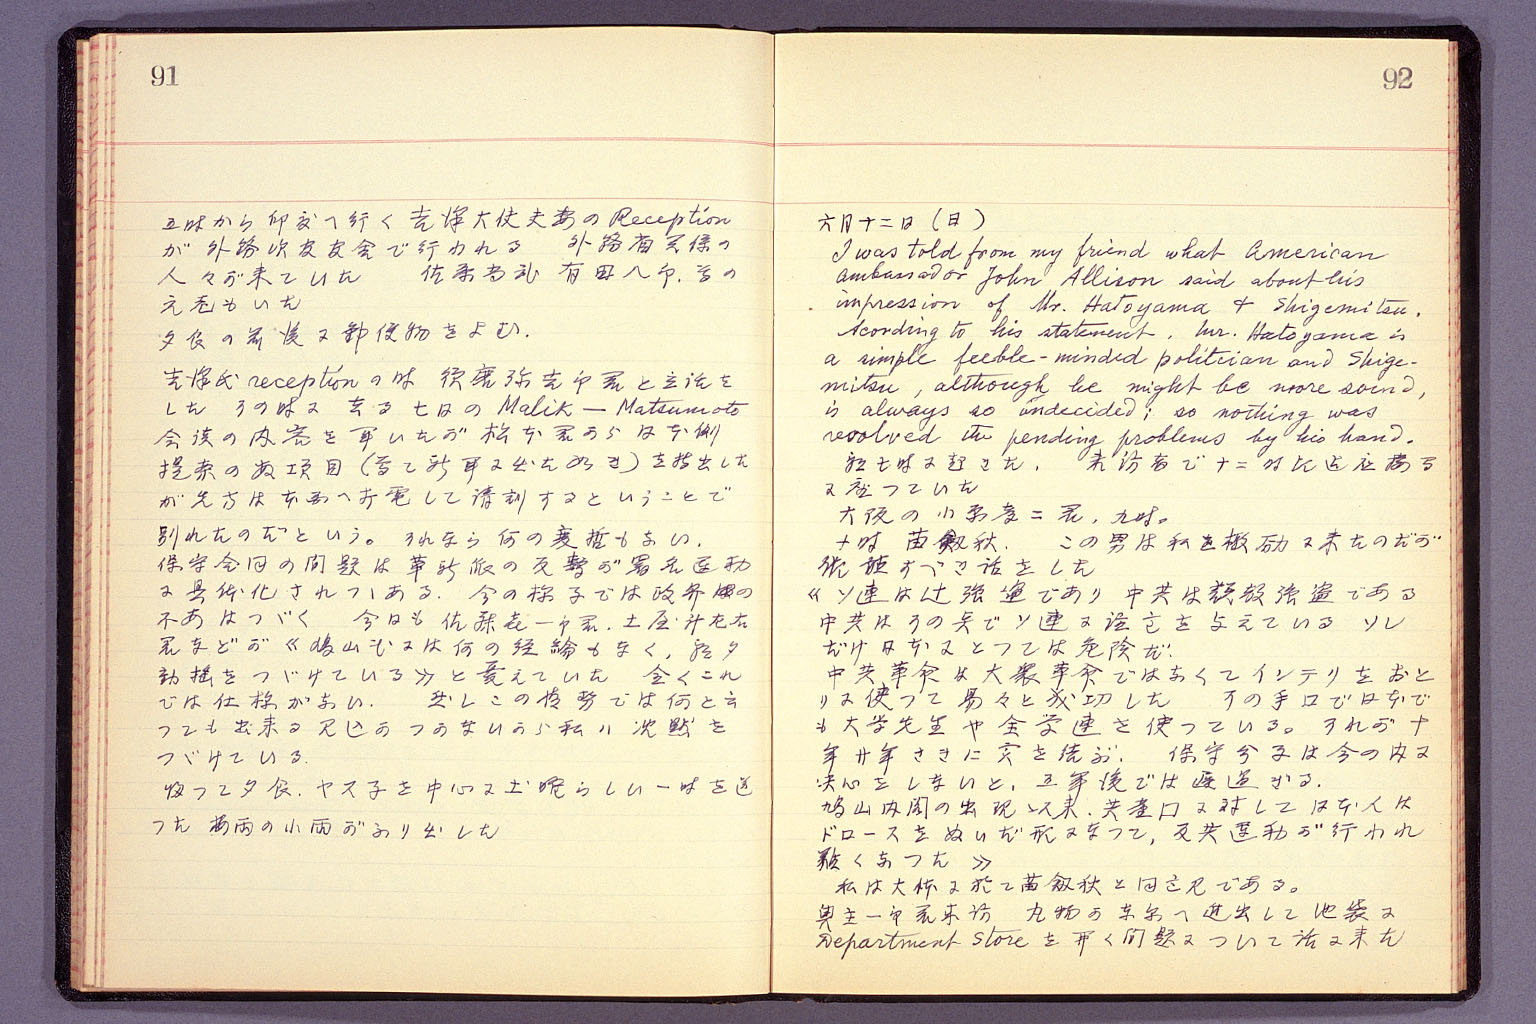 91
五時から印度へ行く 吉澤大使夫妻の Reception
が 外務次官官舎で行われる 外務省関係の
人々が来ていた 佐藤尚武 有田八郎.等の
元老もいた
夕食の前後に郵便物をよむ.
吉澤氏 reception の時 須磨弥吉郎君と立話を
した その時に 去る七日の Malik — Matsumoto
会談の内容を聞いたが 松本君から日本側
提案の 項目( 新聞に出た )を
が先方は本国へ 電して請訓するということで
別れたのだという。 それなら何の変哲もない.
保守合同の問題は革新派の反撃が署名運動
に具体化されつゝある. 今の様子では政界の
不安はつづく 今日も 佐藤 一郎君.土屋
君などが《鳩山 には何の経論もなく,
動揺をつづけている》と 全くこれ
では仕様がない. 然しこの情勢では何と云
つても出来る見込のつかないから私ハ 沈黙を
つづけている.
帰つて夕食.ヤス子を中心に土曜らしい一時を送
つた 梅雨の小雨がふり出した
92
六月十二日(日)
I was told from my friend what American
ambassador John Allison said about his
impression of Mr. Hatoyama & Shigemitsu.
Acording to his statement. Mr. Hatoyama is
a simple feeble-minded politician and Shige-
mitsu, although he might be more sound,
is always so indecided; so nothing was
resolved the pending problems by his hand.
朝七時に起きた. 来訪者で十二時 迄応接る
に座つていた
大阪の小 孝二君.九時。
十時 苗剱秋. この男は私を激励に来たのだが
傾聴すべき話をした
《ソ連は辻強盗であり 中共は 強盗である
中共はその兵でソ連に 与えている ソレ
だけ日本にとつては危険だ.
中共革命は大衆革命ではなくてインテリをおと
りに使つて易々と成功した その手口で日本で
も大学先生や全学連を使つている。それが十
年廿年さきに実を結ぶ. 保守分子は今の内に
決心をしないと,五年後では遅過ぎる.
鳩山内閣の出現以来.共産 に対して日本人は
ドロースをぬいだ形になつて,反共運動が行われ
難くなつた》
私は大体に於て苗剱秋と同意見である。
奥主一郎君来訪 丸物が東京へ進出して池袋に
Department Store を開く問題について話に来た